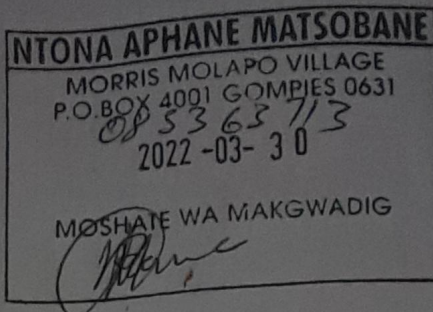 NTONA APHANE MATSOBANE
MORRIS MOLAPO VILLAGE
P.O.BOX 4001 GOMPIES 0631
0853363713
2022 -03- 30
MOSHATE WA MAKGWADIG